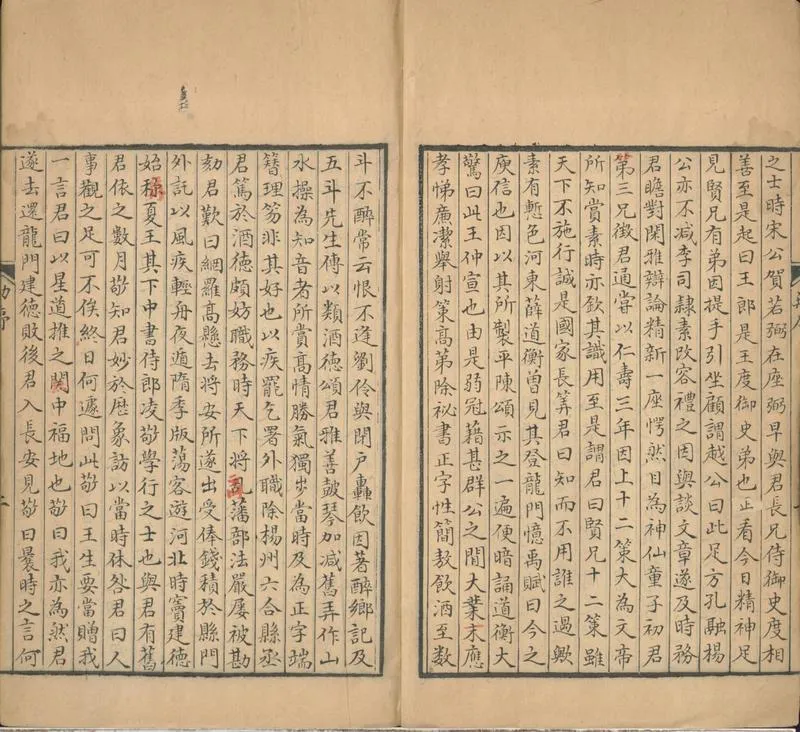 之士時宋公賀若弼在座弼早與君長兄侍御史度相
善至是起曰王郎是王度御史弟也正看今日精神足
見賢兄有弟因提手引坐顧謂越公曰此足方孔融楊
公亦不減李司隸素改容禮之因與談文章遂及時務
君瞻對閑雅辯論精新一座愕然目為神仙童子初君
第三兄徵君通嘗以仁壽三年因上十二策大為文帝
所知賞素時亦欽其識用至是謂君曰賢兄十二策雖
天下不施行誠是國家長筭君曰知而不用誰之過歟
素有慙色河東薛道衡曾見其登龍門憶禹賦曰今之
庾信也因以其所製平陳頌示之一遍便暗誦道衡大
驚曰此王仲宣也由是弱冠藉甚群公之間大業末應
孝悌廉潔舉射策高第除祕書正字性簡敖飲酒至數
斗不醉常云恨不逢劉伶與閉户轟飲因著醉鄉記及
五斗先生傳以類酒德頌君雅善鼓琴加減舊弄作山
水操為知音者所賞高情勝氣獨步當時及為正字端
簪理笏非其好也以疾罷乞署外職除楊州六合縣丞
君篤於酒德頗妨職務時天下將亂藩部法嚴屢被勘
劾君歎曰網羅高懸去將安所遂出受俸錢積於縣門
外託以風疾輕舟夜遁隋季版蕩客遊河北時竇建德
始稱夏王其下中書侍郎凌敬學行之士也與君有舊
君依之數月敬知君妙於曆象訪以當時休咎君曰人
事觀之足可不俟終日何遽問此敬曰王生要當贈我
一言君曰以星道推之関中福地也敬曰我亦為然君
遂去還龍門建德敗後君入長安見敬曰曩時之言何